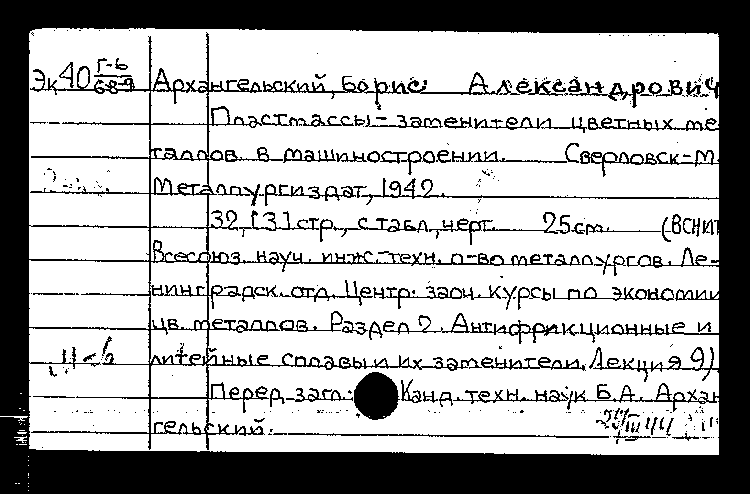 Эк40 Г-6/689 Архангельский, Борис Александрович
Пластмассы-заменители цветных ме-
таллов в машиностроении. Свердловск-М.
Металлургиздат, 1942.
32, [3] стр., с табл., черт. 25 cm. (ВСНИТ
Всесоюз. науч. инж.-техн. о-во металлургов. Ле-
нинградск. отд. Центр. заоч. курсы по экономии
цв. металлов. Раздел 2. Антифрикционные и
литейные сплавы и их заменители. Лекция 9)
Перед загл.: Канд. техн. наук Б.А. Архан
гельский.